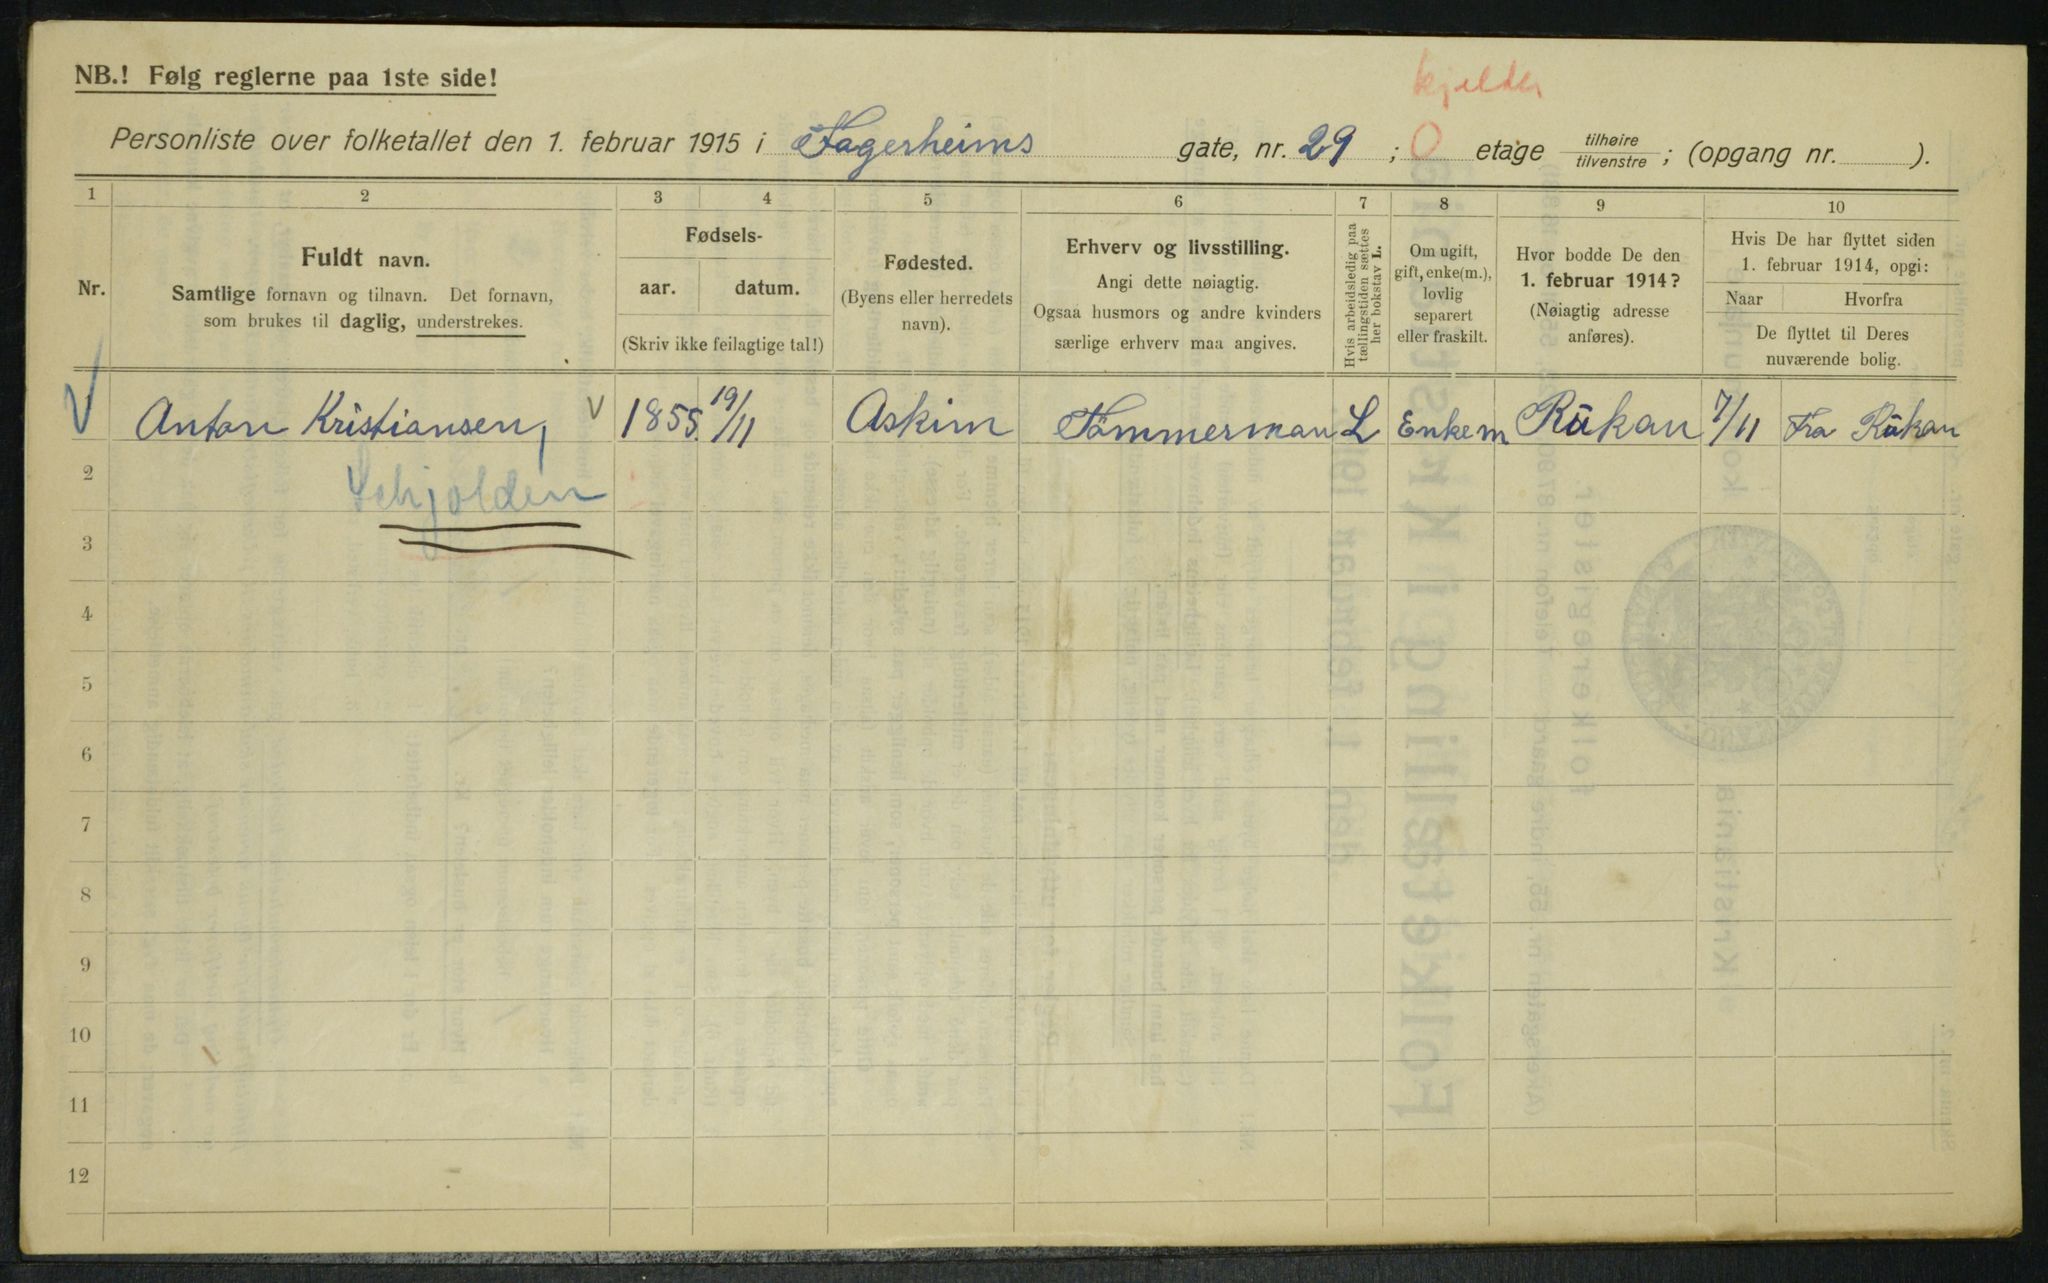 kjelder
NB.! Følg reglerne paa 1ste side!
Personliste over folketallet den 1. februar 1915 i Fagerheims gate, nr. 29 ; 0 etage tilhøire tilvenstre ; (opgang nr. ).
1 2 3 4 5 6 7 8 9 10
Nr.
Fuldt navn.
Samtlige fornavn og tilnavn. Det fornavn,
som brukes til daglig, understrekes.
Fødsels-
aar. datum.
(Skriv ikke feilagtige tal!)
Fødested.
(Byens eller herredets
navn).
Erhverv og livsstilling.
Angi dette nøiagtig.
Ogsaa husmors og andre kvinders
særlige erhverv maa angives.
Hvis arbeidsledig paa
tællingstiden sættes
her bokstav L.
Om ugift,
gift, enke(m.),
lovlig
separert
eller fraskilt.
Hvor bodde De den
1. februar 1914?
(Nøiagtig adresse
anføres).
Hvis De har flyttet siden
1. februar 1914, opgi:
Naar Hvorfra
De flyttet til Deres
nuværende bolig.
Anton Kristiansen, 1855. 19/11 Askim Tömmerman L Enkem Rükan 7/11 Fra Rükan
2
3
4
5
6
7
8
9
10
11
12